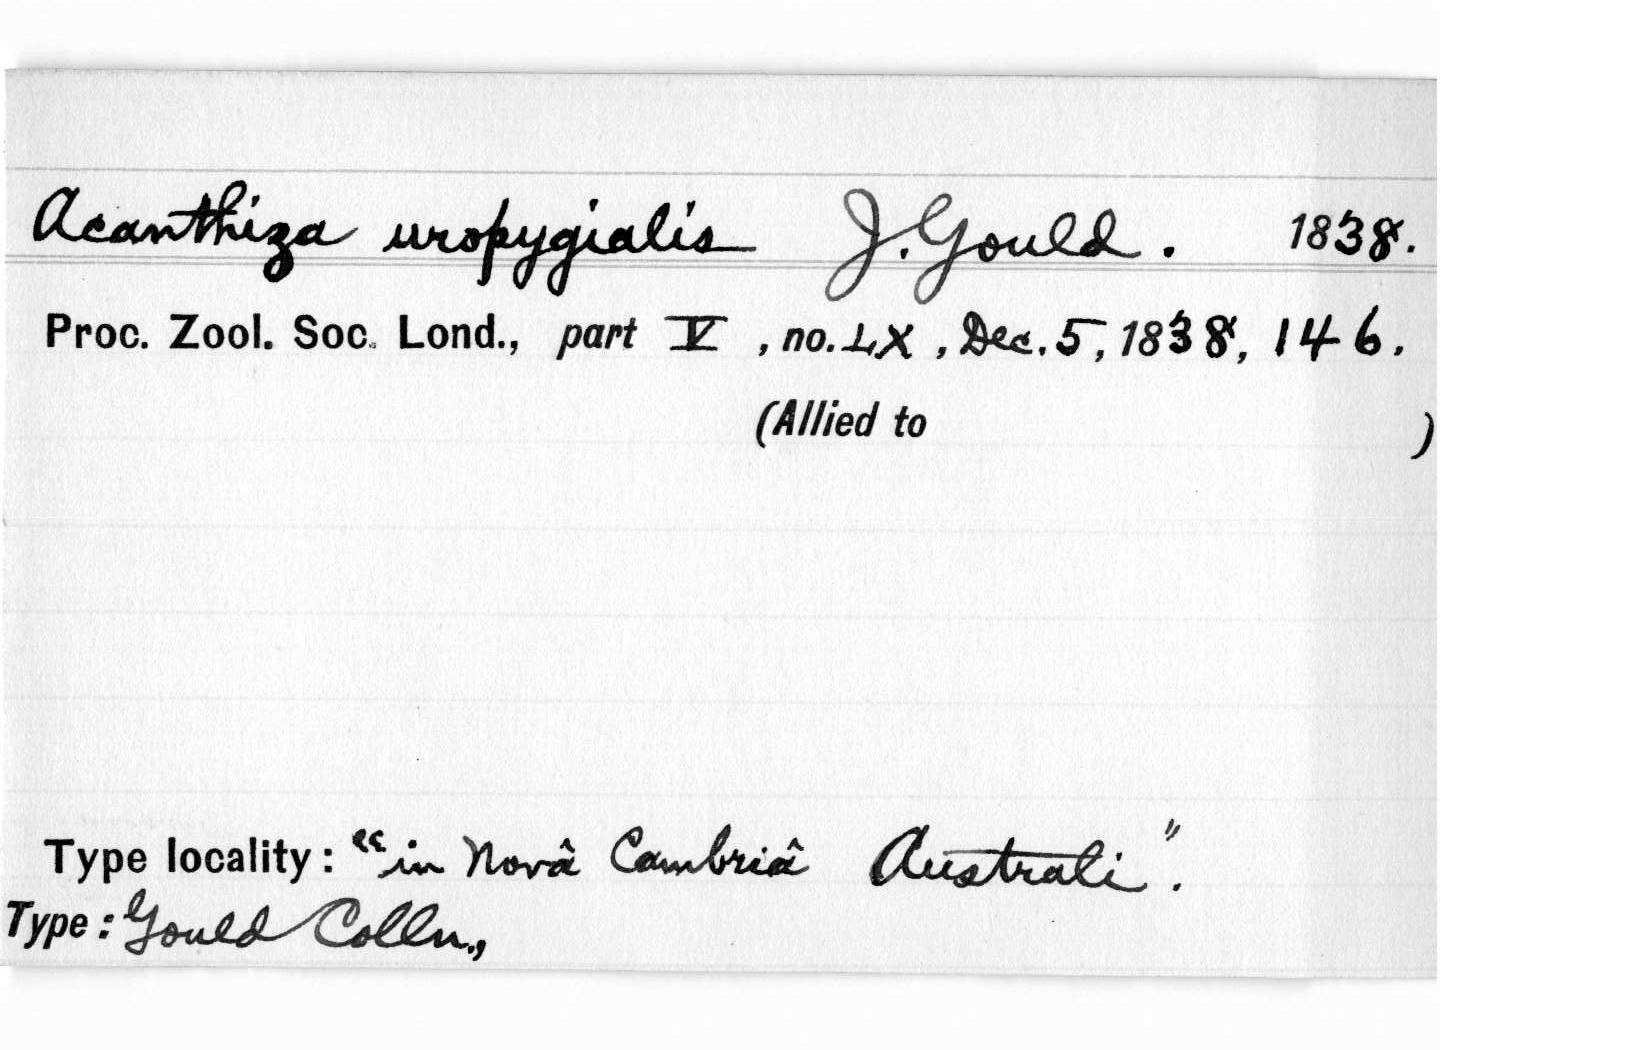 Acanthiza uropygialis J. Gould. 1838.
Proc. Zool. Soc. Lond., part V, no. LX, Dec. 5, 1838, 146.
(Allied to )
Type locality: "in Novâ Cambriâ Australi".
Type: Gould Colln.,